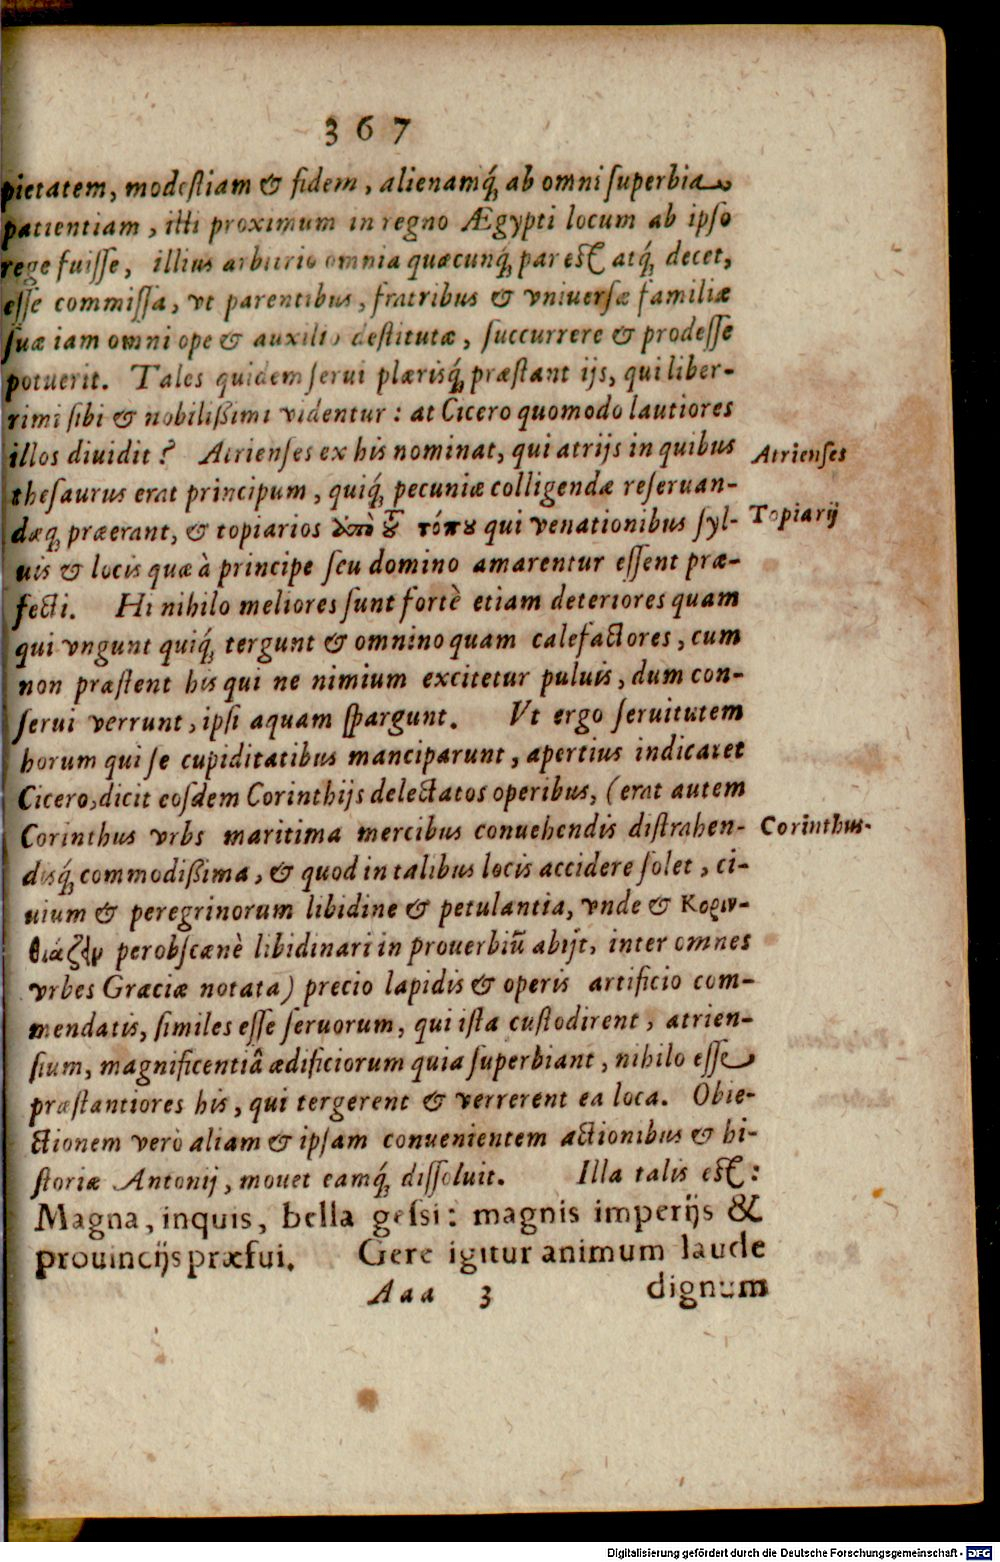 367
pietatem, modestiam & fidem, alienamq́; ab omni superbia
patientiam, illi proximum in regno Ægypti locum ab ipso
rege fuisse, illius arbitrio omnia quæcunq́; par est atq́; decet,
esse commissa, vt parentibus, fratribus & vniuersæ familiæ
suæ iam omni ope & auxilio destitutæ, succurrere & prodesse
potuerit. Tales quidem serui plærisq́; præstant ijs, qui liber-
rimi sibi & nobilißimi videntur: at Cicero quomodo lautiores
illos diuidit? Atrienses ex his nominat, qui atrijs in quibus
Atrienses
thesaurus erat principum, quiq́; pecuniæ colligendæ reseruan-
dæq; præerant, & topiarios ἀπὸ τοῦ τόπου qui venationibus syl-
Topiarij
uis & locis quæ à principe seu domino amarentur essent præ-
fecti. Hi nihilo meliores sunt fortè etiam deteriores quam
qui vngunt quiq́; tergunt & omnino quam calefactores, cum
non præstent his qui ne nimium excitetur puluis, dum con-
serui verrunt, ipsi aquam spargunt. Vt ergo seruitutem
horum qui se cupiditatibus manciparunt, apertius indicaret
Cicero, dicit eosdem Corinthijs delectatos operibus, (erat autem
Corinthus vrbs maritima mercibus conuehendis distrahen-
Corinthus.
disq́; commodißima, & quod in talibus locis accidere solet, ci-
uium & peregrinorum libidine & petulantia, vnde & Κοριν-
θιάζειν perobscænè libidinari in prouerbiũ abijt, inter omnes
vrbes Græciæ notata) precio lapidis & operis artificio com-
mendatis, similes esse seruorum, qui ista custodirent, atrien-
sium, magnificentiâ ædificiorum quia superbiant, nihilo esse
præstantiores his, qui tergerent & verrerent ea loca. Obie-
ctionem verò aliam & ipsam conuenientem actionibus & hi-
storiæ Antonij, mouet eamq́; dissoluit. Illa talis est:
Magna, inquis, bella gessi: magnis imperijs &
prouincijs præfui. Gere igitur animum laude
Aaa 3 dignum
Digitalisierung gefördert durch die Deutsche Forschungsgemeinschaft - DFG